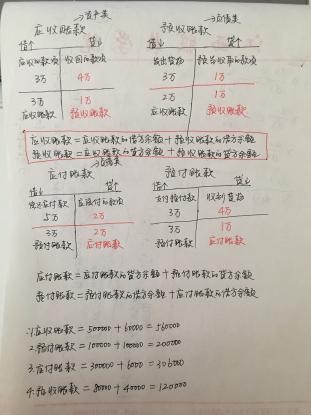 →资产类 →负债类
应收账款 预收账款
借↑ 贷↓ 借↓ 贷↑
应收的款项 收回的款项 发出货物 预先收取的款项
3万 4万 3万 1万
3万 1万 2万 1万
应收账款 预收账款 应收账款 预收账款
应收账款=应收账款的借方余额+预收账款的借方余额
预收账款=应收账款的贷方余额+预收账款的贷方余额
应付账款 预付账款
借↓ 贷↑ 借↑ 贷↓
应付的款项 支付预付款 收到货物
5万 2万 3万 4万
3万 2万 3万 1万
预付账款 应付账款 预付账款 应付账款
应付账款=应付账款的贷方余额+预付账款的贷方余额
预付账款=预付账款的借方余额+应付账款的借方余额
1.应收账款=500000+60000=560000
2.预付账款=100000+100000=200000
3.应付账款=300000+6000=306000
4.预收账款=80000+40000=120000